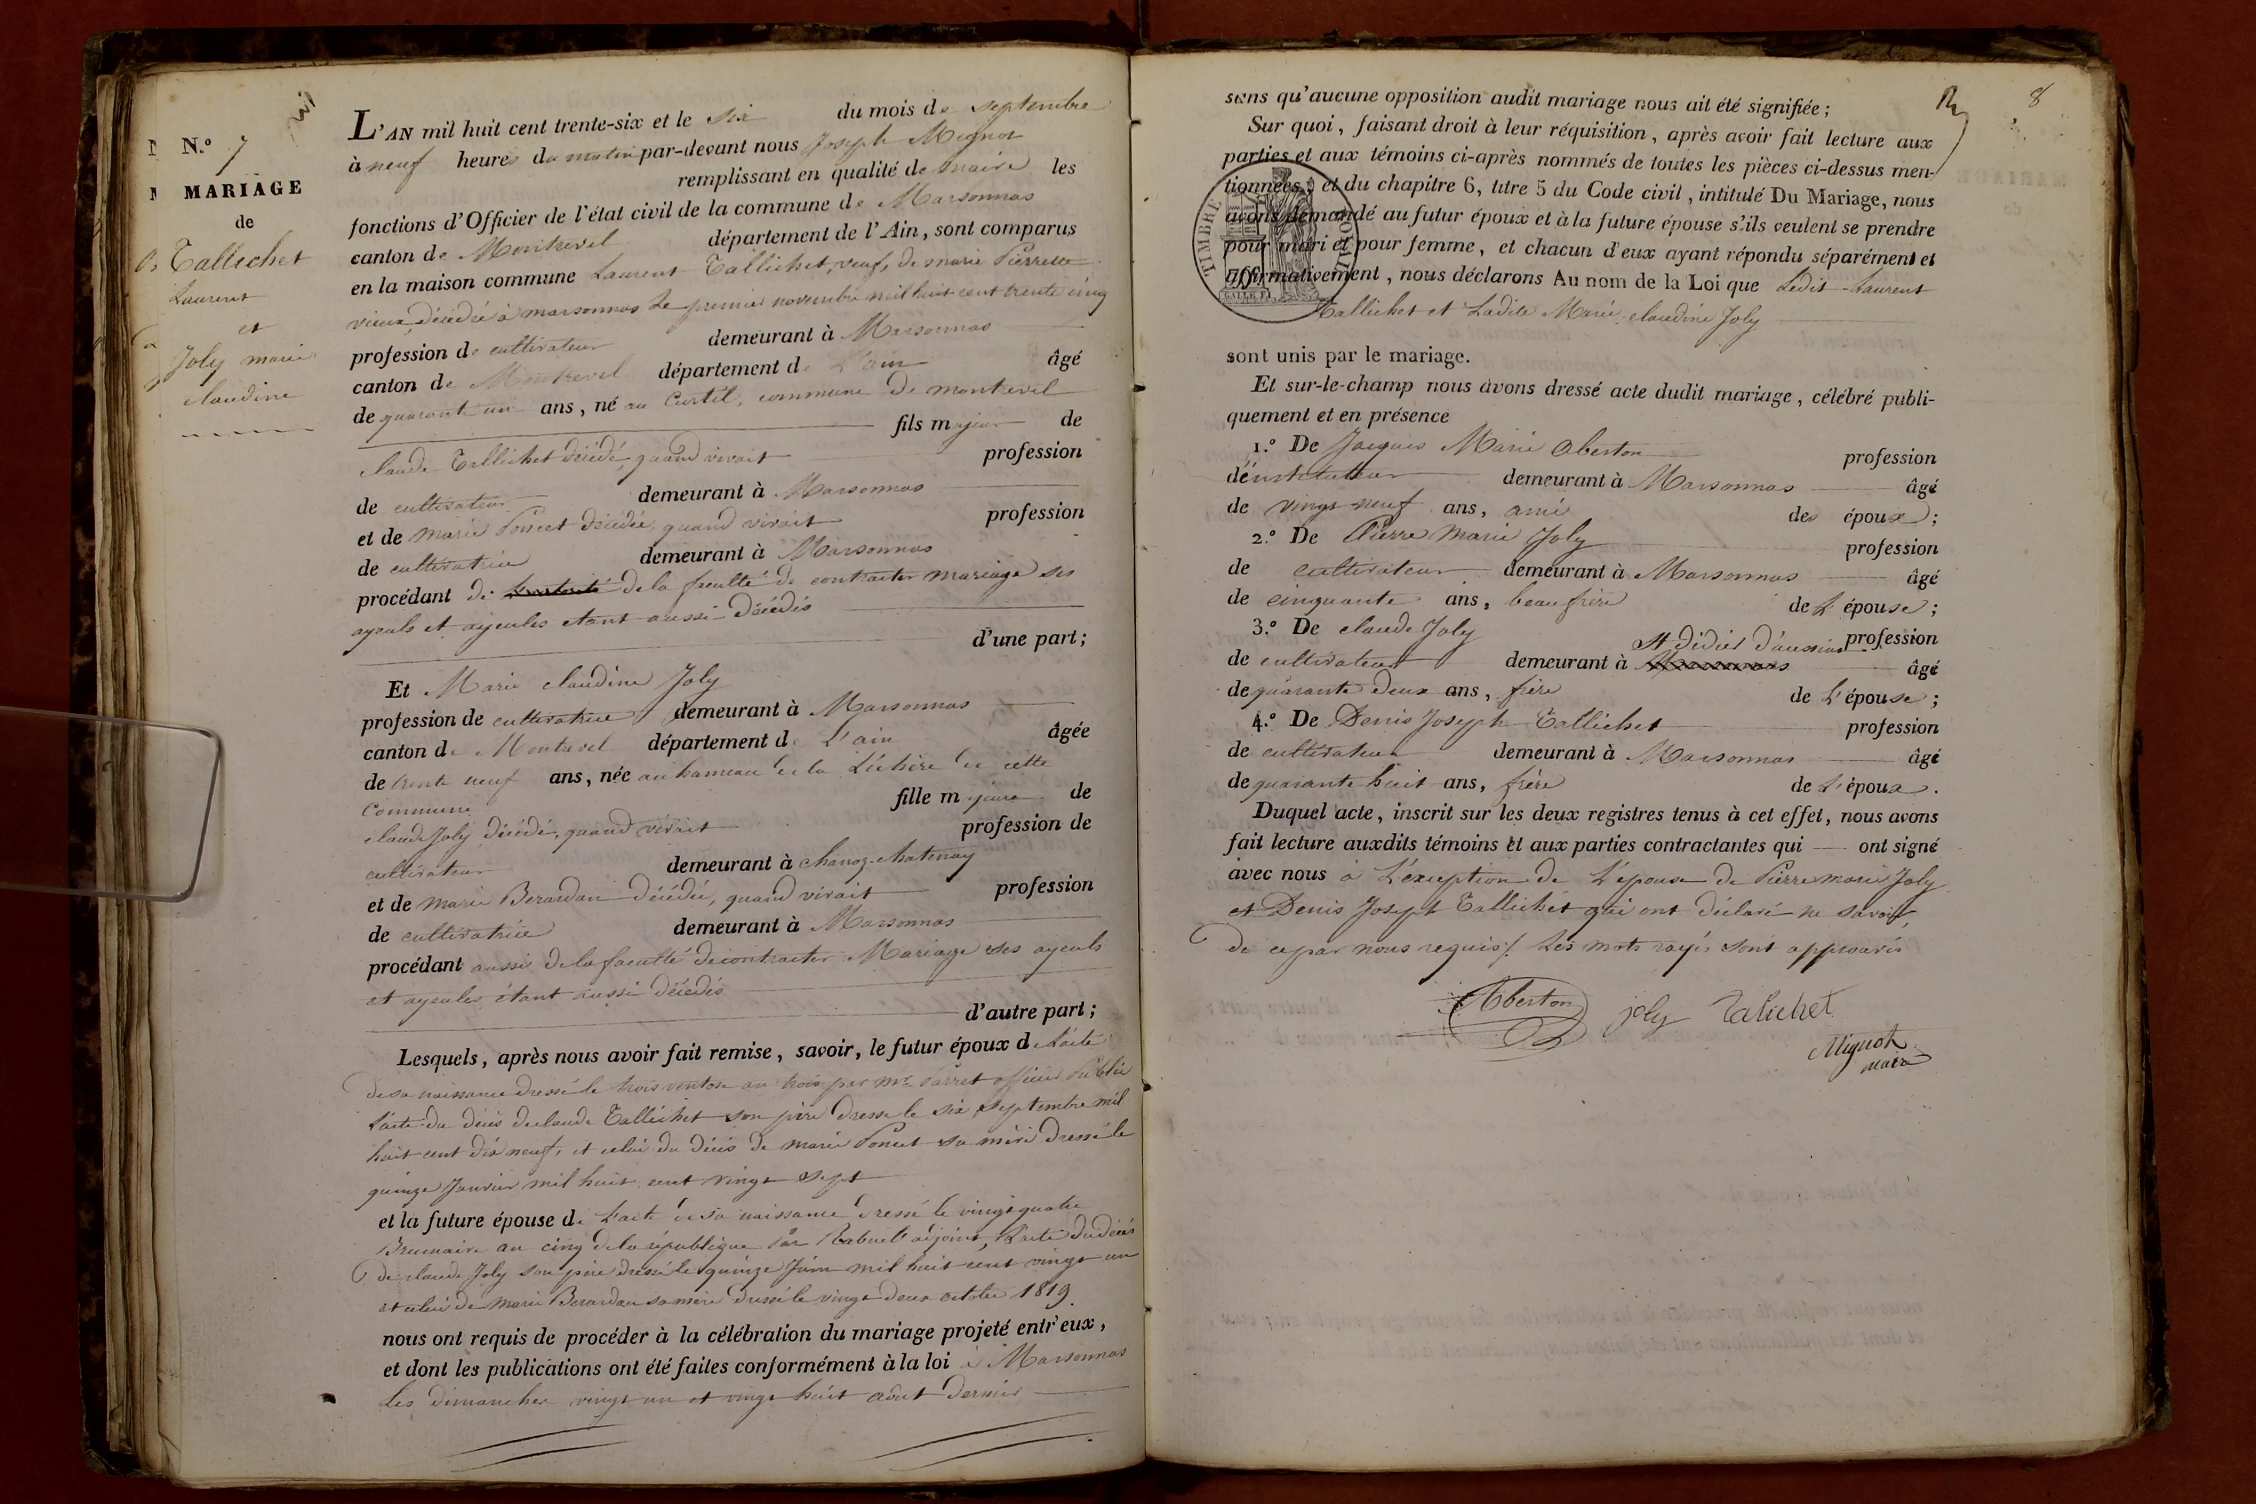 N.º 7
MARIAGE
de
Tallichet
Laurent
et
Joly marie
claudine
L'AN mil huit cent trente-six et le six du mois de septembre
à neuf heures du matin par-devant nous Joseph Mignot
remplissant en qualité de maire les
fonctions d'Officier de l'état civil de la commune de Marsonnas
canton de Montrevel département de l'Ain, sont comparus
en la maison commune Laurent Tallichet, veuf, de marie Pierrette
vieux, décédée à marsonnas le premier novembre mil huit cent trente cinq
profession de cultivateur demeurant à Marsonnas
canton de Montrevel département de L'ain âgé
de quarante un ans, né au Curtil, commune de montrevel
fils majeur de
claude Tallichet décédé, quand vivait profession
de cultivateur demeurant à Marsonnas
et de marie Poncet décédée, quand vivait profession
de cultivatrice demeurant à Marsonnas
procédant de de la faculté de contracter mariage ses
ayeuls et ayeules etant aussi décédés
d'une part;
Et Marie claudine Joly
profession de cultivatrice demeurant à Marsonnas
canton de Montrevel département de L'ain âgée
de trente neuf ans, née au hameau de la Léchère de cette
commune fille majeure de
claude Joly décédé, quand vivait profession de
cultivateur demeurant à chanoz-chatenay
et de marie Berardan décédée, quand vivait profession
de cultivatrice demeurant à Marsonnas
procédant aussi de la faculté de contracter Mariage ses ayeuls
et ayeules étant aussi décédés
d'autre part;
Lesquels, après nous avoir fait remise, savoir, le futur époux de L'acte
de sa naissance dressé le trois ventose an trois par mr. Parret officier Public
L'acte du décès de claude Tallichet son père dressé le six septembre mil
huit cent dix neuf, et celui du décès de marie Poncet sa mère dressé le
quinze Janvier mil huit cent vingt sept
et la future épouse de L'acte de sa naissance dressé le vingt quatre
Brumaire an cinq de la république par adjoint, L'acte du décès
de claude Joly son père dressé le quinze Juin mil huit cent vingt un
et celui de marie Berardan sa mère dressé le vingt deux octobre 1819
nous ont requis de procéder à la célébration du mariage projeté entr'eux,
et dont les publications ont été faites conformément à la loi à Marsonnas
les dimanches vingt un et vingt huit aout dernier
8
sans qu'aucune opposition audit mariage nous ait été signifiée;
Sur quoi, faisant droit à leur réquisition, après avoir fait lecture aux
parties et aux témoins ci-après nommés de toutes les pièces ci-dessus men-
tionnées, et du chapitre 6, titre 5 du Code civil, intitulé Du Mariage, nous
avons demandé au futur époux et à la future épouse s'ils veulent se prendre
pour mari et pour femme, et chacun d'eux ayant répondu séparément et
affirmativement, nous déclarons Au nom de la Loi que Ledit Laurent
Tallichet et Ladite Marie claudine Joly
TIMBRE ROYAL
sont unis par le mariage.
Et sur-le-champ nous avons dressé acte dudit mariage, célébré publi-
quement et en présence
1.º De Jacques Marie Aberton profession
d'instituteur demeurant à Marsonnas âgé
de vingt neuf ans, ami des époux;
2.º De Pierre Marie Joly profession
de cultivateur demeurant à Marsonnas âgé
de cinquante ans, beau frère de L'épouse;
3.º De claude Joly profession
de cultivateur demeurant à St didier d'aussiat Marsonnas âgé
de quarante deux ans, frère de L'épouse;
4.º De Denis Joseph Tallichet profession
de cultivateur demeurant à Marsonnas âgé
de quarante huit ans, frère de L'époux.
Duquel acte, inscrit sur les deux registres tenus à cet effet, nous avons
fait lecture auxdits témoins et aux parties contractantes qui ont signé
avec nous à L'exception de L'épouse de Pierre marie Joly
et Denis Joseph Tallichet qui ont déclaré ne savoir,
de ce par nous requis /. Les mots rayés sont approuvés
Aberton joly Talichet
Mignot
maire